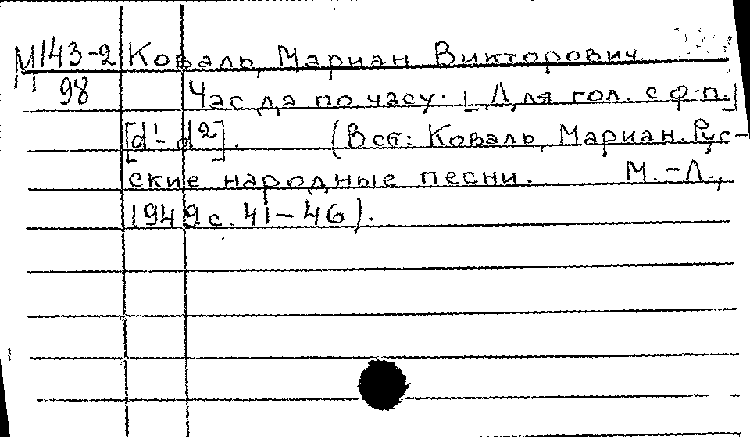 М143-2 Коваль, Мариан Викторович
98 Час да по часу. [Для гол. с ф-п.]
[d¹-d²]. (В сб: Коваль, Мариан. Рус-
ские народные песни. М.-Л.,
1949 с. 41-46).